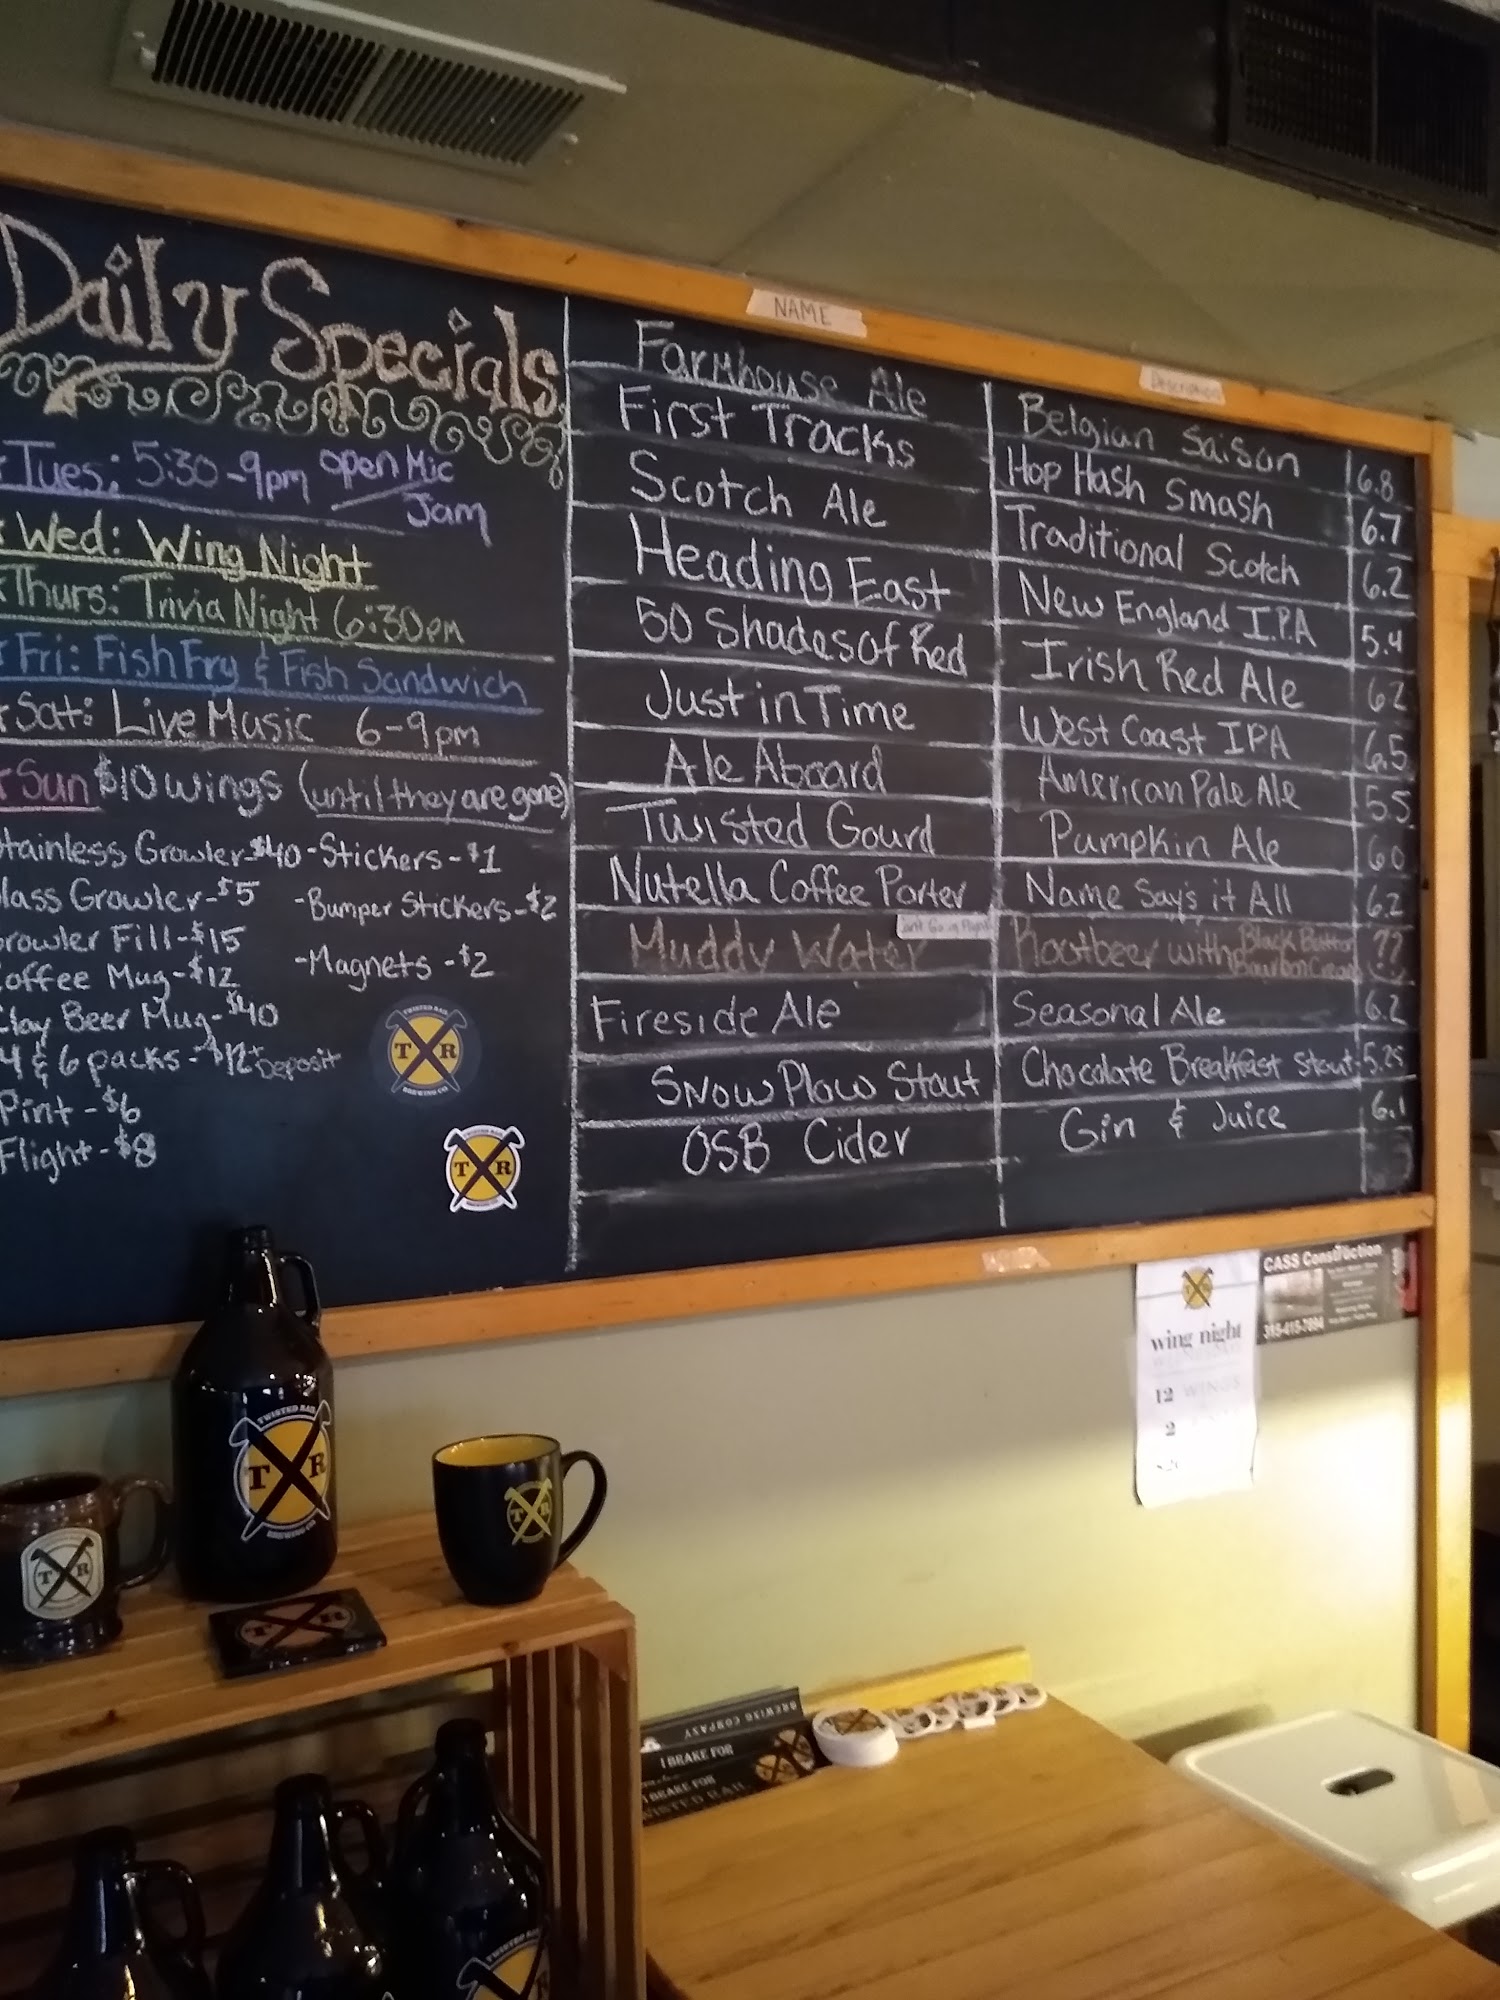 Daily Specials
Tues: 5:30-9pm Open Mic
Jam
Wed: Wing Night
Thurs: Trivia Night 6:30pm
Fri: Fish Fry & Fish Sandwich
Sat: Live Music 6-9pm
Sun $10 wings (until they are gone)
tainless Growler-$40
-Stickers-$1
lass Growler-$5
-Bumper Stickers-$2
rowler Fill-$15
-Magnets-$2
offee Mug-$12
lay Beer Mug-$40
4 & 6 packs-$12+ Deposit
Pint-$6
Flight-$8
TWISTED RAIL
T R
BREWING CO.
TWISTED RAIL
T R
BREWING CO.
NAME
Description
Farmhouse Ale Belgian Saison 6.8
First Tracks Hop Hash Smash 6.7
Scotch Ale Traditional Scotch 6.2
Heading East New England I.P.A 5.4
50 Shades of Red Irish Red Ale 6.2
Just in Time West Coast IPA 6.5
Ale Aboard American Pale Ale 5.5
Twisted Gourd Pumpkin Ale 6.0
Nutella Coffee Porter Name Say's it All 6.2
Muddy Water Rootbeer with Black Button Bourbon Cream ??
Fireside Ale Seasonal Ale 6.2
Snow Plow Stout Chocolate Breakfast Stout 5.25
OSB Cider Gin & Juice 6.1
CASS Construction
315-415-7894
wing night
12 WINGS
2
TWISTED RAIL
T R
BREWING CO.
T R
T R
BREWING COMPANY
I BRAKE FOR
I BRAKE FOR
TWISTED RAIL